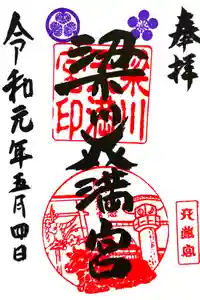 奉拝
梁川天満宮
梁川天満宮印
天満宮
令和元年五月四日